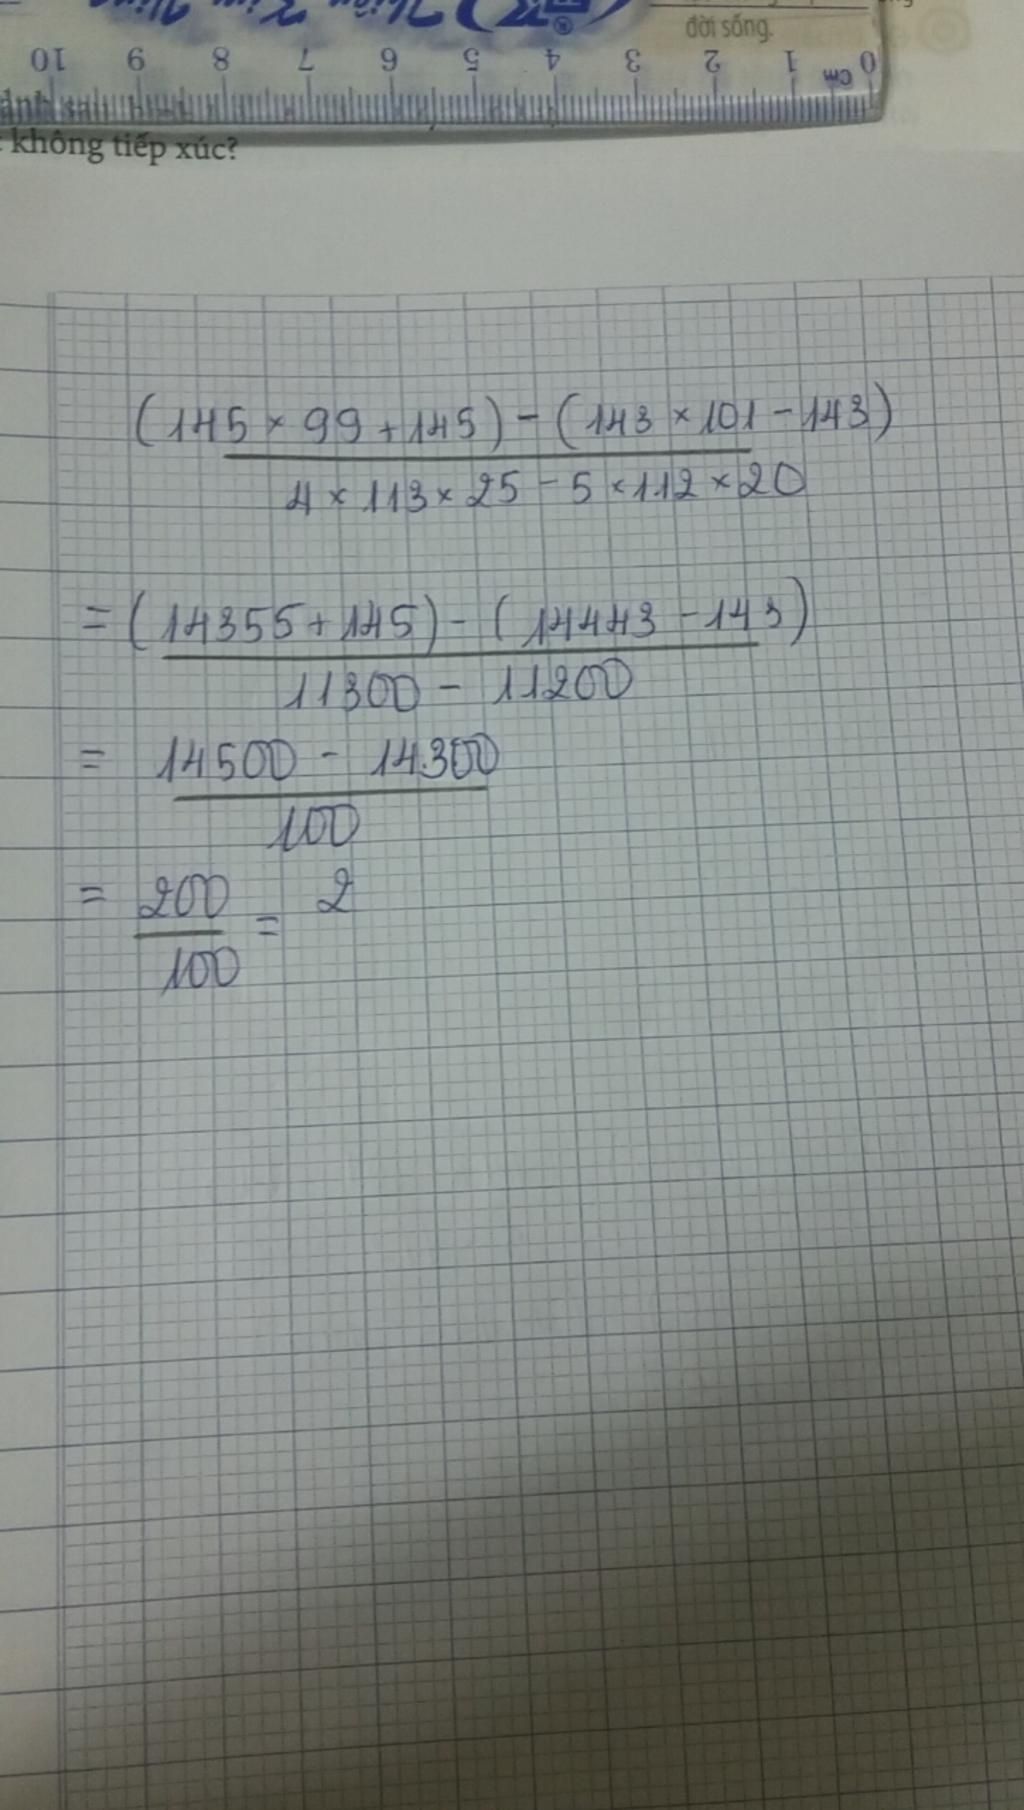 đời sống.
10 9 8 7 6 5 4 3 2 1 0 cm
không tiếp xúc?
(145 × 99 + 145) - (143 × 101 - 143)
4 × 113 × 25 - 5 × 112 × 20
= (14355 + 145) - (14443 - 143)
11300 - 11200
= 14500 - 14300
100
= 200 = 2
100